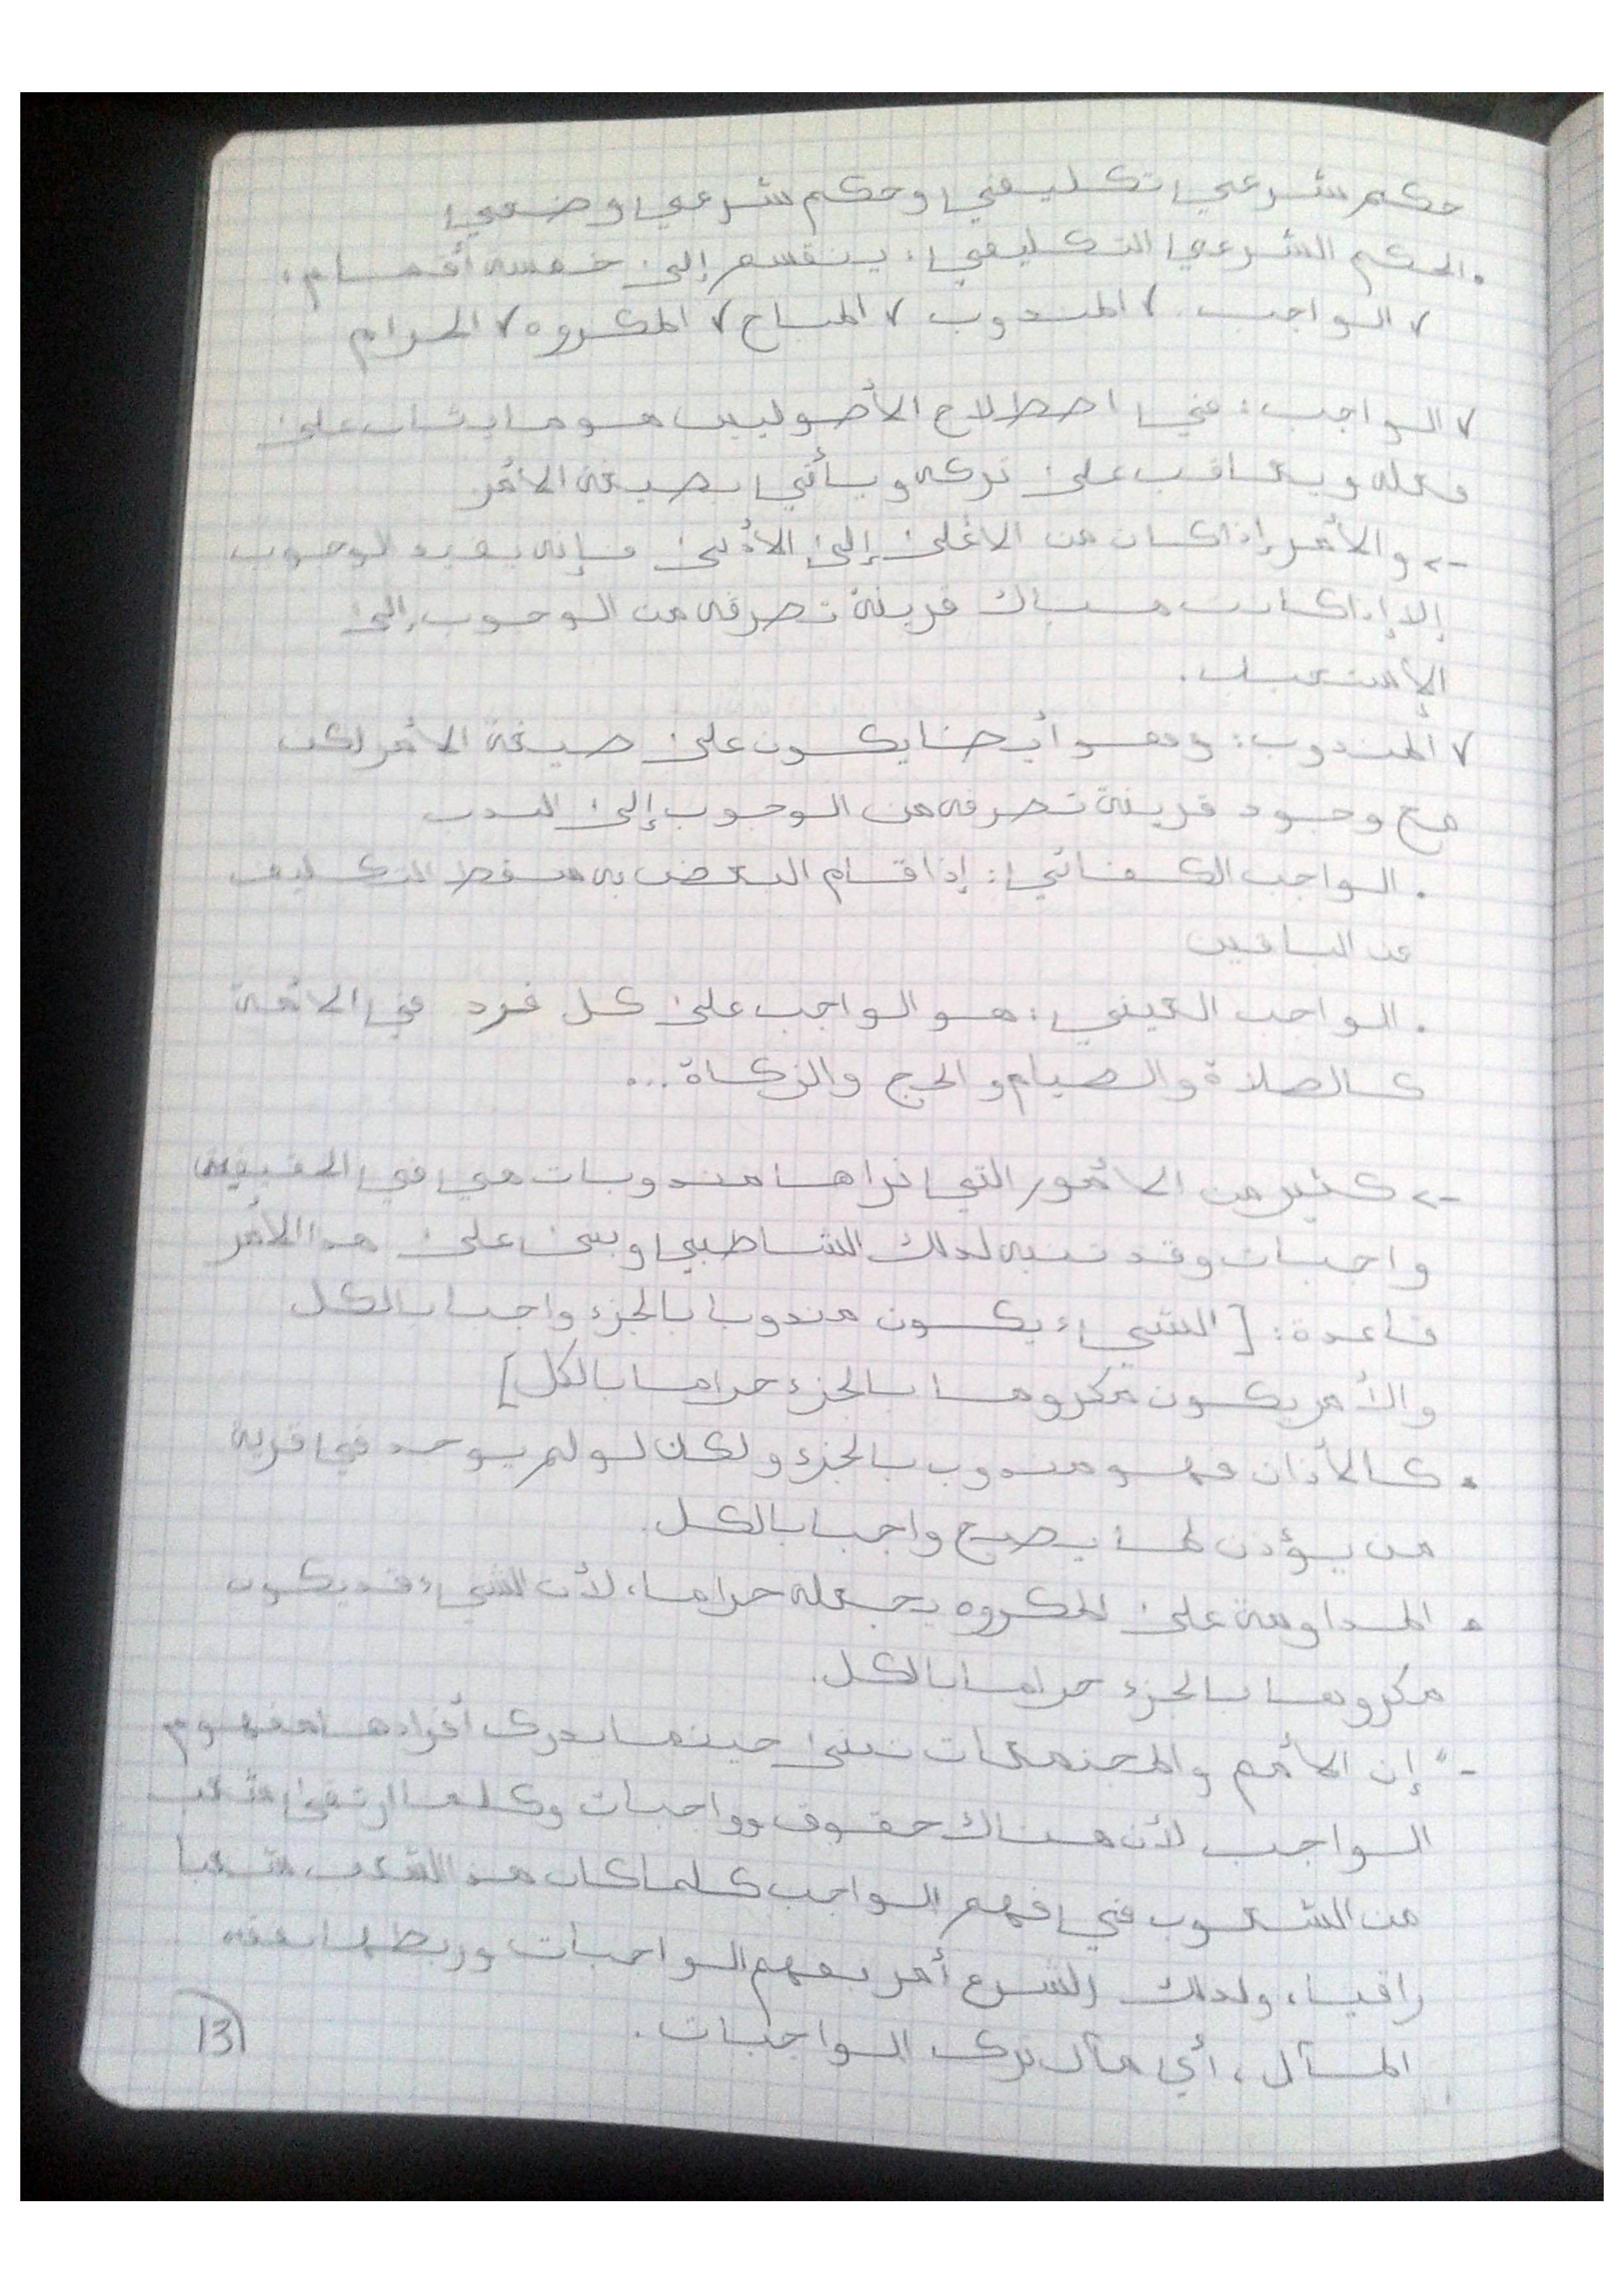 حكم شرعي تكليفي وحكم شرعي وضعي
• الحكم الشرعي التكليفي: ينقسم إلى خمسة أقسام:
✓ الواجب. ✓ المندوب ✓ المباح ✓ المكروه ✓ الحرام
✓ الواجب: في اصطلاح الأصوليين هو ما يثاب على
فعله ويعاقب على تركه ويأتي بصيغة الأمر
-> والأمر إذا كان من الأعلى إلى الأدنى فإنه يفيد الوجوب
إلا إذا كانت هناك قرينة تصرفه من الوجوب إلى
✓ المندوب: وهو أيضا يكون على صيغة الأمر لكن
مع وجود قرينة تصرفه من الوجوب إلى الندب
• الواجب الكفائي: إذا قام البعض به سقط التكليف
عن الباقين
• الواجب العيني: هو الواجب على كل فرد في الأمة
كالصلاة والصيام والحج والزكاة...
-> كثير من الأمور التي نراها مندوبات هي في الحقيقة
واجبات وقد تنبه لذلك الشاطبي وبنى على هذا الأمر
قاعدة: [الشيء يكون مندوبا بالجزء واجبا بالكل
والأمر يكون مكروها بالجزء حراما بالكل]
• كالأذان فهو مندوب بالجزء ولكن لو لم يوجد في قرية
من يؤذن لها يصبح واجبا بالكل.
• المداومة على المكروه يجعله حراما، لأن الشيء قد يكون
مكروها بالجزء حراما بالكل.
- "إن الأمم والمجتمعات تبنى حينما يدرك أفرادها مفهوم
الواجب لأن هناك حقوق وواجبات وكلما ارتقى شعب
من الشعوب في فهم الواجب كلما كان هذا الشعب شعبا
راقيا، ولذلك الشرع أمر بفهم الواجبات وربطها بفقه
المآل، أي مآل ترك الواجبات.
13